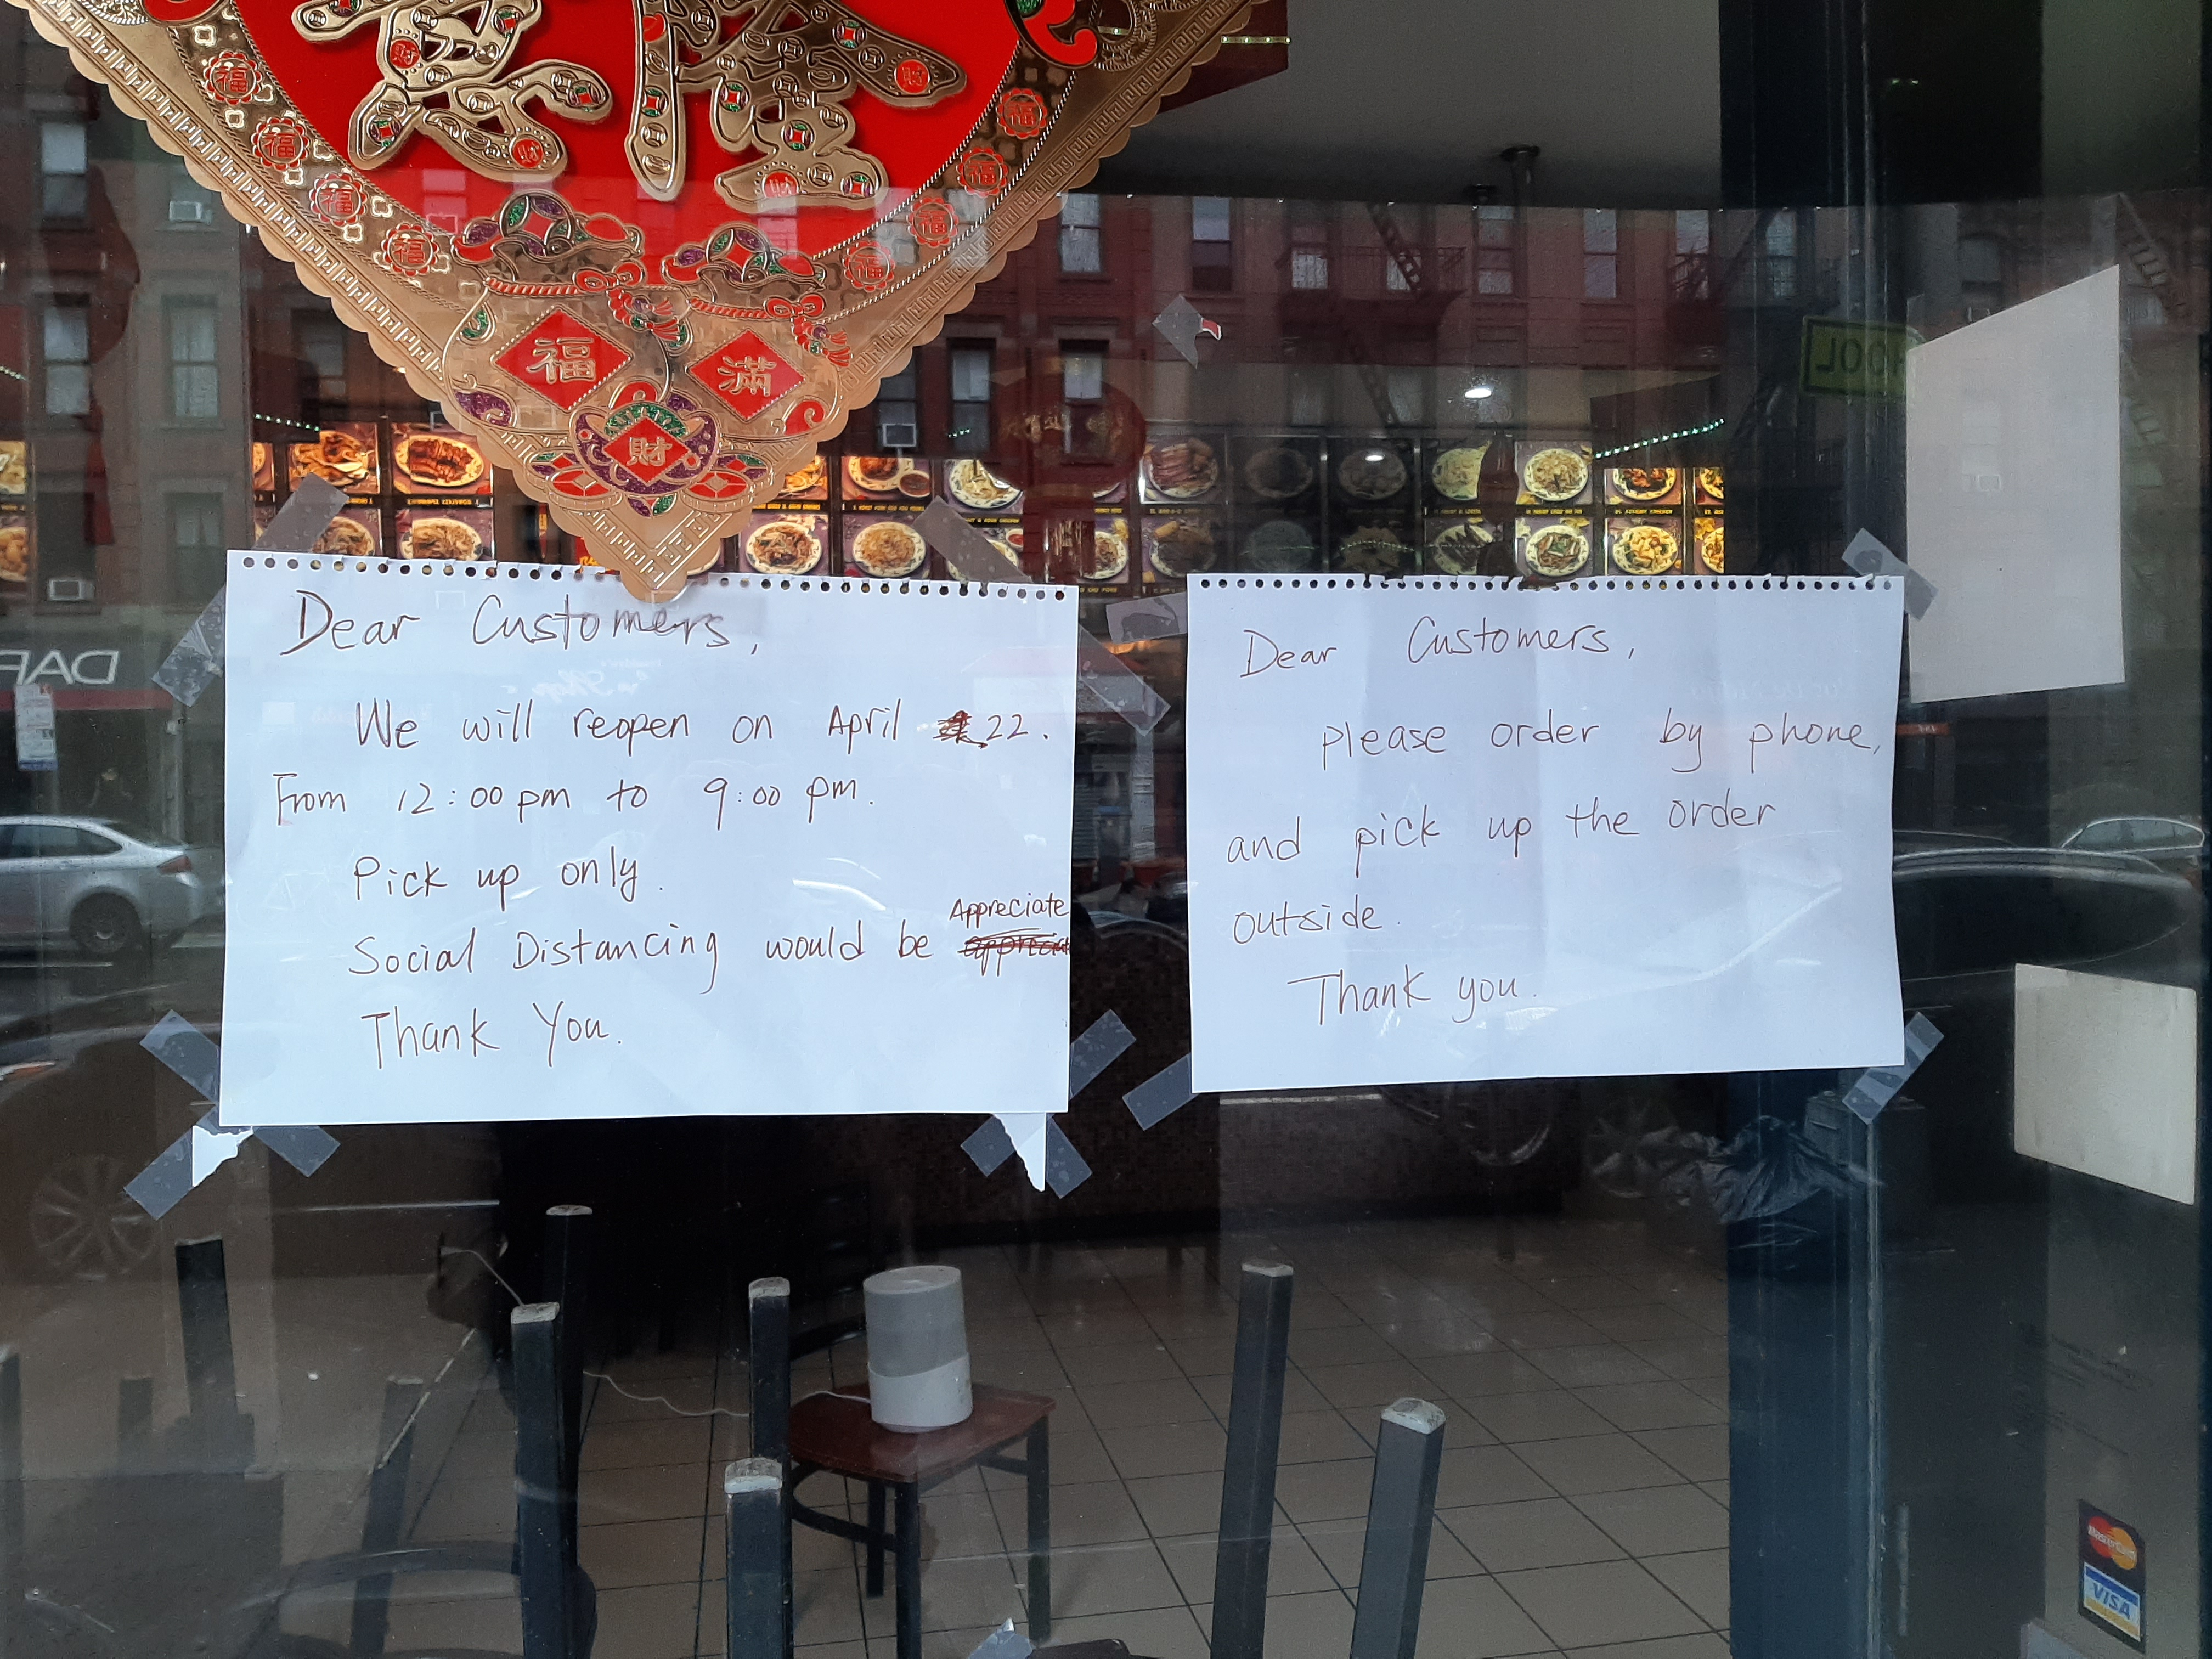 福 滿
財
Dear Customers,
We will reopen on April 22.
From 12:00 pm to 9:00 pm.
Pick up only.
Appreciate
Social Distancing would be
Thank You.
Dear Customers,
please order by phone,
and pick up the order
outside.
Thank you.
MasterCard
VISA